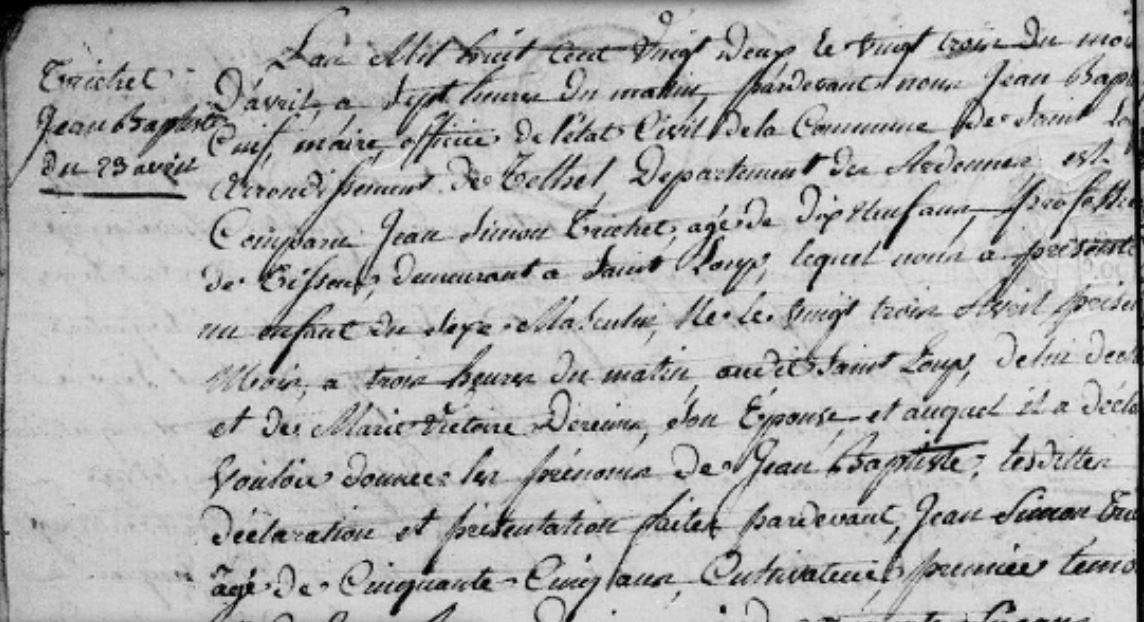 Trichet
Jean Baptiste
du 23 avril
L'an Mil huit cent vingt Deux le vingt trois Du moi
D'avril, a Sept heures Du matin, pardevant nous Jean Bapt
maire, officier de l'état Civil de la Commune De Saint Lo
arrondissement De Rethel, Departement des Ardennes, est
Comparu Jean Simon Trichet, agé de dix Neuf ans, profession
de Tisseur, demeurant a Saint Loup, lequel nous a présenté
un enfant du Sexe Masculin, Né le vingt trois Avril présen
Mois, a trois heures du matin, audit Saint Loup, de lui decla
et De Marie Victoire Son Epouse, et auquel il a décla
Vouloir donner les prénoms de Jean Baptiste, lesdittes
déclaration et présentation faites pardevant, Jean Simon Tri
agé de Cinquante Cinq ans, Cultivateur, premier temo